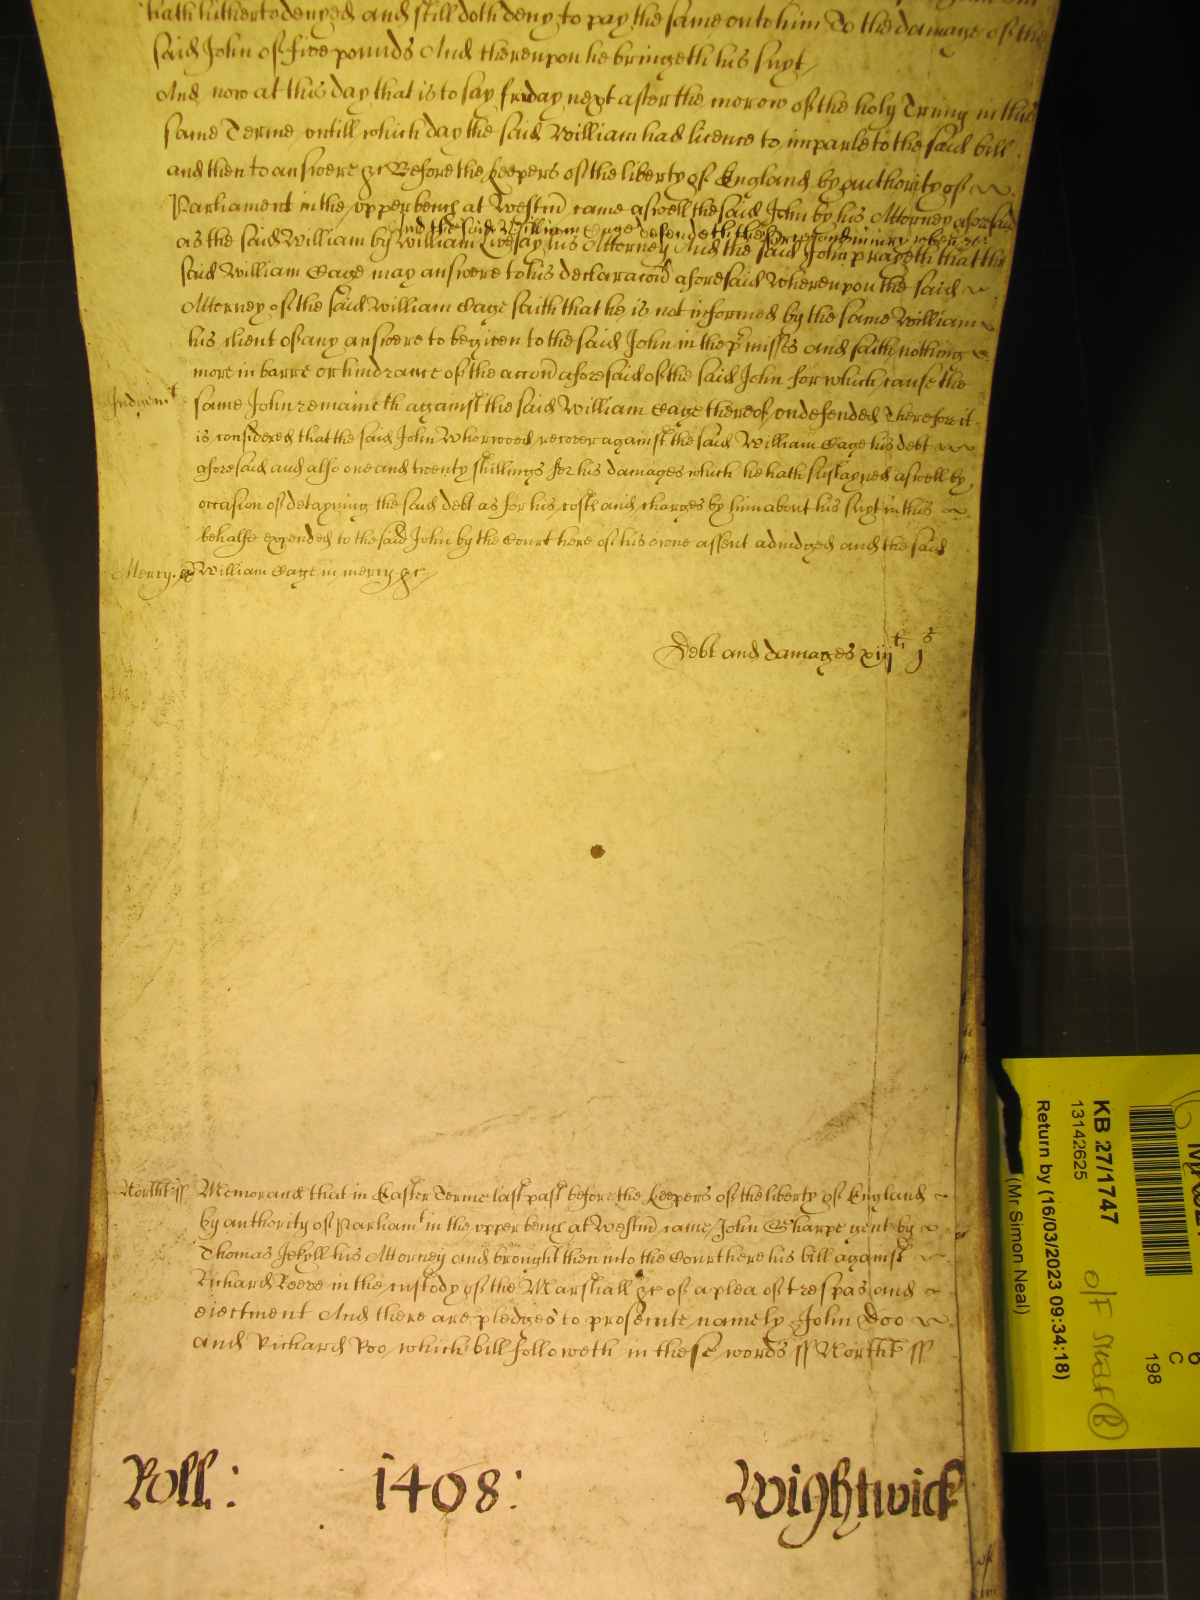 hath hitherto denyed and still doth deny to pay the same unto him To the damage of the
said John of five pounds And thereupon he bringeth his suyt
And now at this day that is to say friday next after the morow of the holy Trinity in this
same Terme untill which day the said William had licence to imparle to the said bill
and then to answere &c Before the keepers of the liberty of England by authority of
Parliament in the upper bench at Westm came aswell the said John by his Attorney aforesaid
And the said William Cage defendeth the force and iniury when &c
as the said William by William Livesay his Attorney And the said John prayeth that the
said William Cage may answere to his declaracon aforesaid Whereupon the said
Attorney of the said William Cage saith that he is not informed by the same William
his client of any answere to be given to the said John in the pmisses and saith nothing
more in barre or hindrance of the accon aforesaid of the said John for which cause the
Judgemt same John remaineth against the said William Cage thereof undefended Therefore it
is considered that the said John Whorwood recover against the said William Cage his debt
aforesaid and also one and twenty shillings for his damages which he hath sustayned aswell by
occasion of detayning the said debt as for his costs and charges by him about his suyt in this
behalfe expended to the said John by the Court here of his owne assent adiudged and the said
Mercy. William Cage in mercy &c
Debt and damages xiijli js
Northt ss Memorand that in Easter Terme last past before the keepers of the liberty of England
by authority of Parliamt in the upper bench at Westm came John Sharpe gent by
Thomas Jekyll his Attorney and brought then into the Court here his bill against
Richard Reeve in the custody of the Marshall &c of a plea of trespas and
eiectment And there are pledges to prosecute namely John Doo
and Richard Roo which bill followeth in these words ss Northt ss
Roll: 1408: Wightwick
KB 27/1747
13142625
Return by (16/03/2023 09:34:18)
(Mr Simon Neal)
O/F
6
C
198